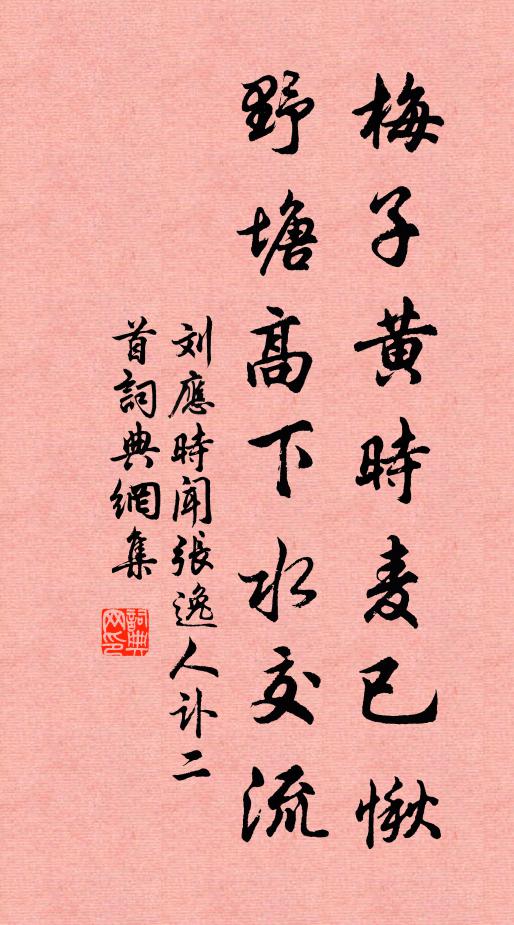 梅子黄時麦已愀
野塘高下水交流
刘應時闻張逸人訃二
首詞典網集
詞典
网印